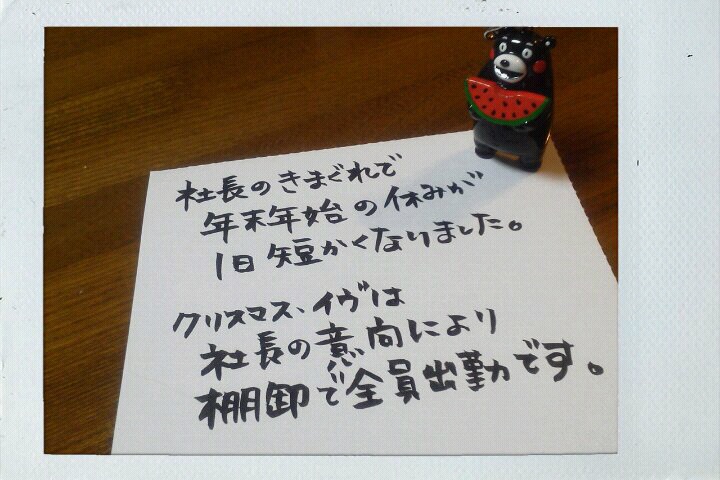 社長のきまぐれで
年末年始の休みが
1日短かくなりました。
クリスマス、イヴは
社長の意向により
棚卸で全員出勤です。